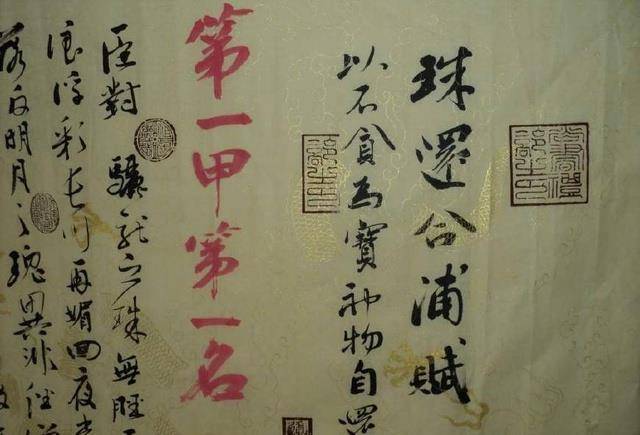 珠還合浦賦
以不貪為寶神物自還
第一甲第一名
臣對 驪龍之珠無脛
浪浮彩長川再媚回夜
明月之瑰異非經